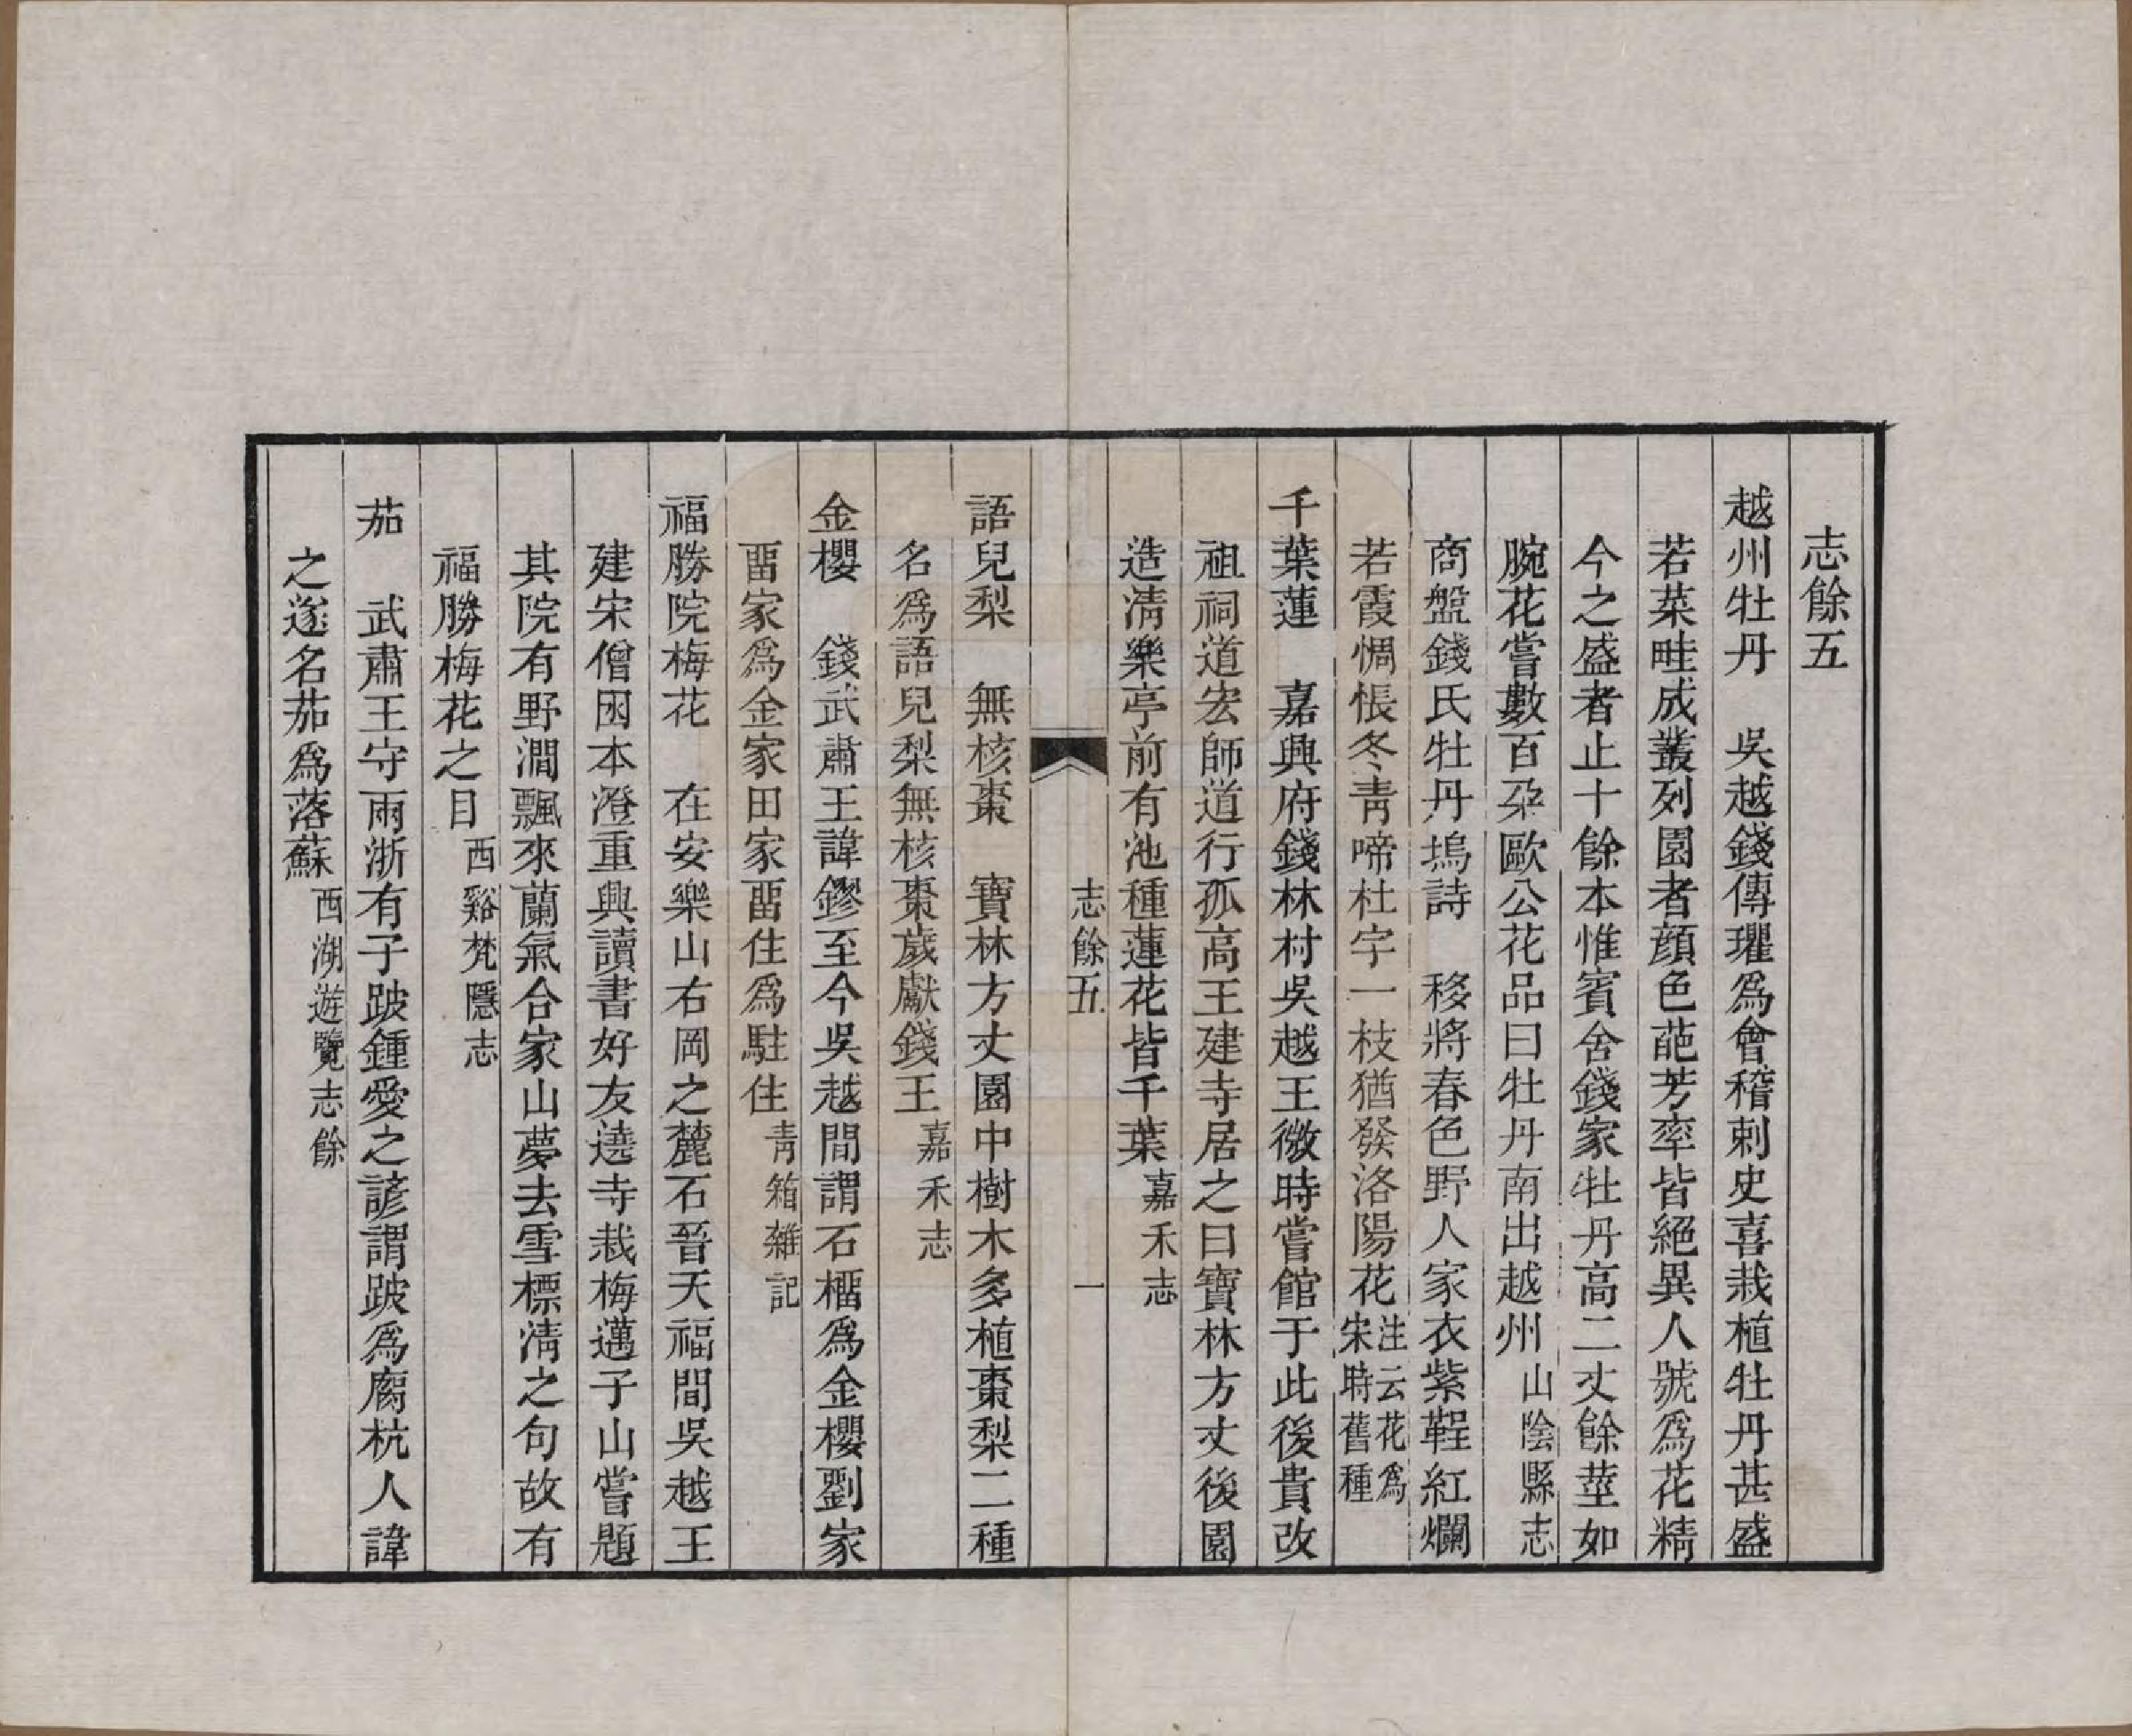 志餘五
越州牡丹　吳越錢傳瓘爲會稽刺史喜栽植牡丹甚盛
若菜畦成叢列園者顔色葩芳率皆絕異人號爲花精
今之盛者止十餘本惟賓舍錢家牡丹高二丈餘莖如
腕花嘗數百朶歐公花品曰牡丹南出越州山陰縣志
商盤錢氏牡丹塢詩　移將春色野人家衣紫鞓紅爛
若霞惆悵冬青啼杜宇一枝猶發洛陽花注云花爲宋時舊種
千葉蓮　嘉興府錢林村吳越王微時嘗館于此後貴改
祖祠道宏師道行孤高王建寺居之曰寶林方丈後園
造淸樂亭前有池種蓮花皆千葉嘉禾志
志餘五　一
語兒梨　無核棗　寶林方丈園中樹木多植棗梨二種
名爲語兒梨無核棗歲獻錢王嘉禾志
金櫻　錢武肅王諱鏐至今吳越間謂石榴爲金櫻劉家
畱家爲金家田家畱住爲駐住靑箱雜記
福勝院梅花　在安樂山右岡之麓石晉天福間吳越王
建宋僧困本澄重興讀書好友遶寺栽梅邁子山嘗題
其院有野澗飄來蘭氣合家山夢去雪標淸之句故有
福勝梅花之目西谿梵隱志
茄　武肅王守兩浙有子跛鍾愛之諺謂跛爲瘸杭人諱
之遂名茄爲落蘇西湖遊覽志餘